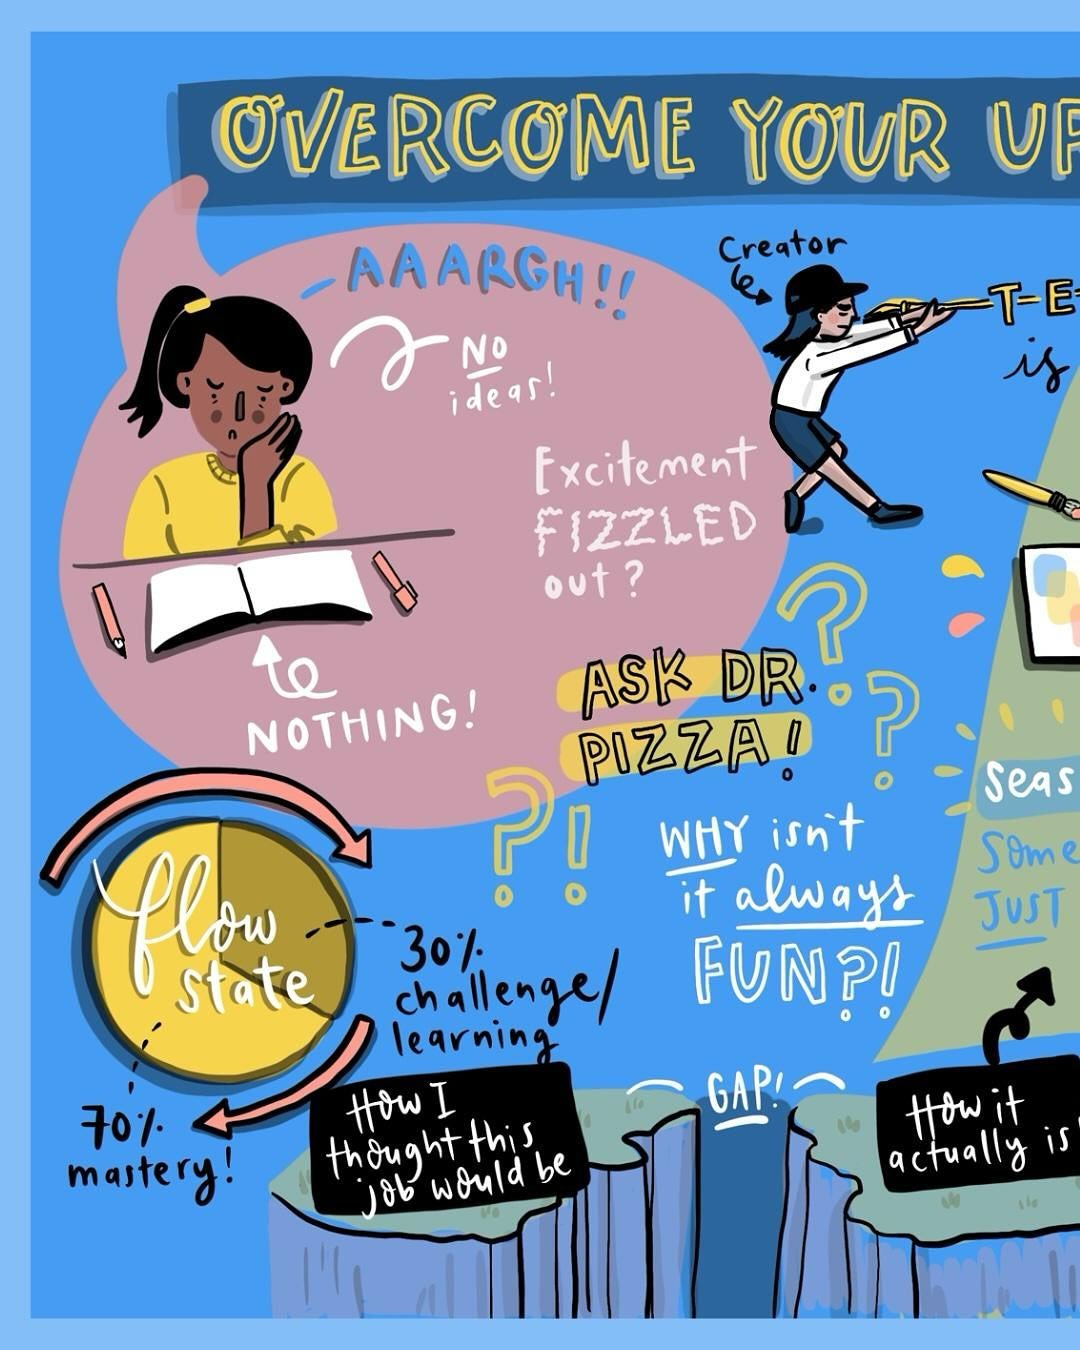 OVERCOME YOUR
AAARGH!!
NO
ideas!
Excitement
FIZZLED
out?
NOTHING!
Creator
is
ASK DR.
PIZZA!
WHY isn't
it always
FUN?!
flow
state
30%
challenge/
learning
70%
mastery!
JUST
How I
thought this
job would be
GAP!
How it
actually is